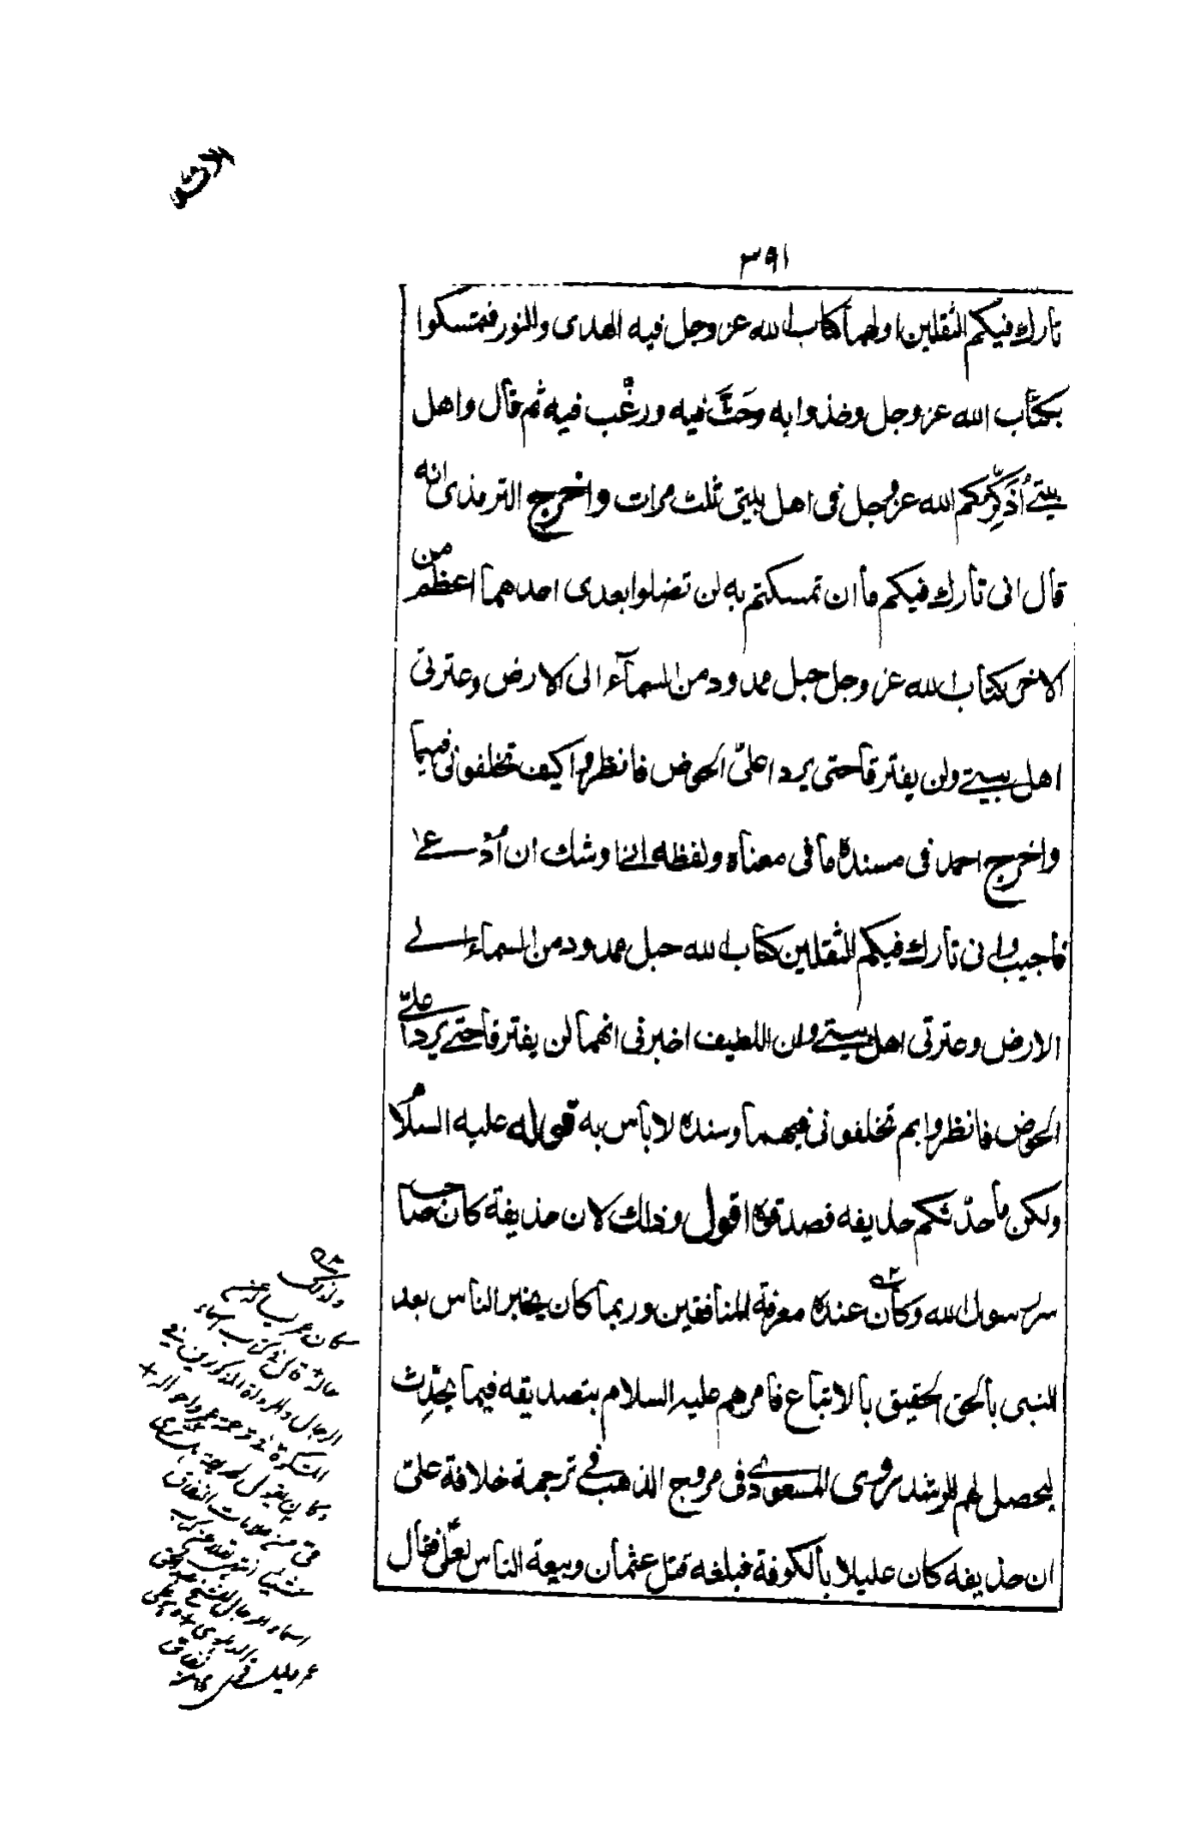 ٣٩١
تارك فيكم الثقلين اولهما كتاب الله عز وجل فيه الهدى والنور فتمسكوا
بكتاب الله عز وجل وخذوا به وحَثَّ فيه ورغّب فيه ثم قال واهل
بيتے اُذَكِّركم الله عز وجل فى اهل بيتى ثلث مرات واخرج الترمذى انه
قال انى تارك فيكم ما ان تمسكتم به لن تضلوا بعدى احدهما اعظم من
الاخر كتاب الله عز وجل حبل ممدود من السمآء الى الارض وعترتى
اهل بيتے ولن يفترقا حتى يردا علىّ الحوض فانظروا كيف تخلفونى فيهما
واخرج احمد فى مسنده ما فى معناه ولفظه انى اوشك ان اُدْعےٰ
فاجيب وانى تارك فيكم الثقلين كتاب الله حبل ممدود من السماء الے
الارض وعترتى اهل بيتے وان اللطيف اخبرنى انهما لن يفترقا حتے يردا علےّ
الحوض فانظروا بم تخلفونى فيهما وسنده لا باس به قوله عليه السلام
ولكن ما حدّثكم حذيفه فصدقوه اقول وذلك لان حذيفة كان صاحب
سر رسول الله وكان عنده معرفة المنافقين وربما كان يخبر الناس بعد
النبى بالحق الحقيق بالاتباع فامرهم عليه السلام بتصديقه فيما يحدِّث
ليحصل لهم الرشد وروى المسعودے فى مروج الذهب فے ترجمة خلافة علىّ
ان حذيفه كان عليلا بالكوفة فبلغه قتل عثمان وبيعة الناس لعلىّ فقال